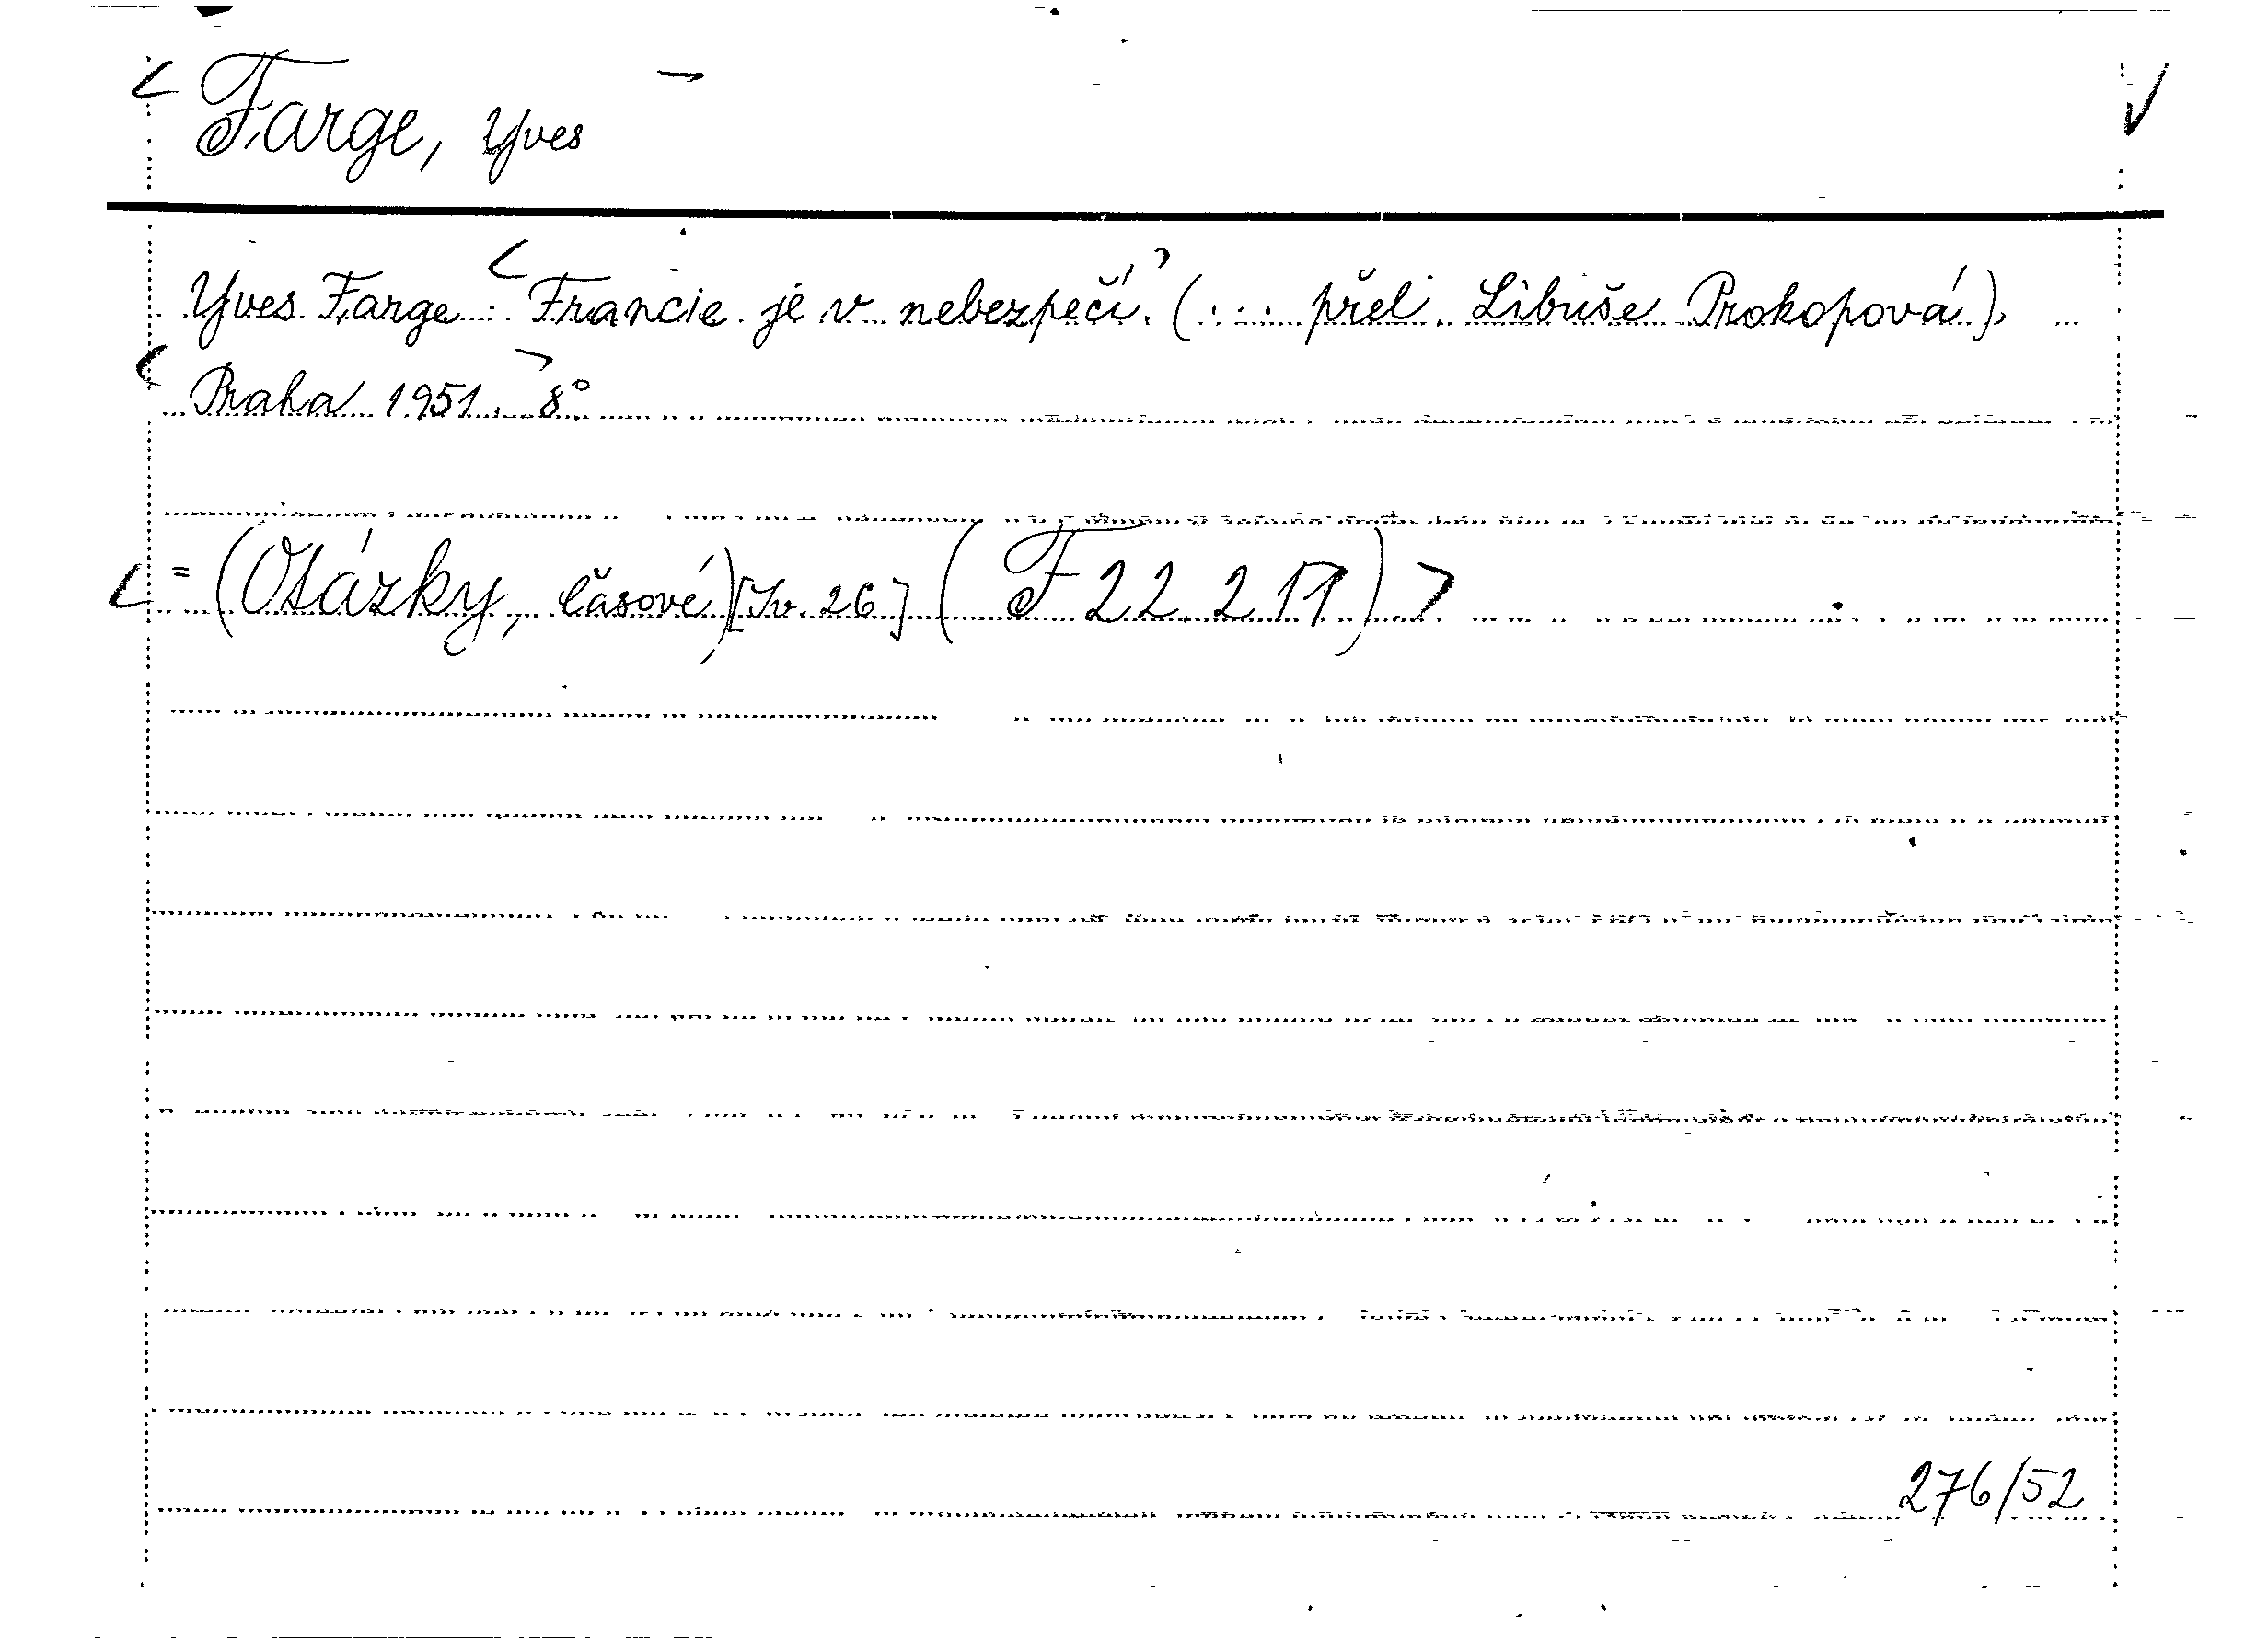 Farge, Yves
Yves Farge: Francie je v nebezpečí. (... přel. Libuše Prokopová).
Praha 1951. 8°
= (Otázky, časové) [Sv. 26] (F 22.211)
276/52